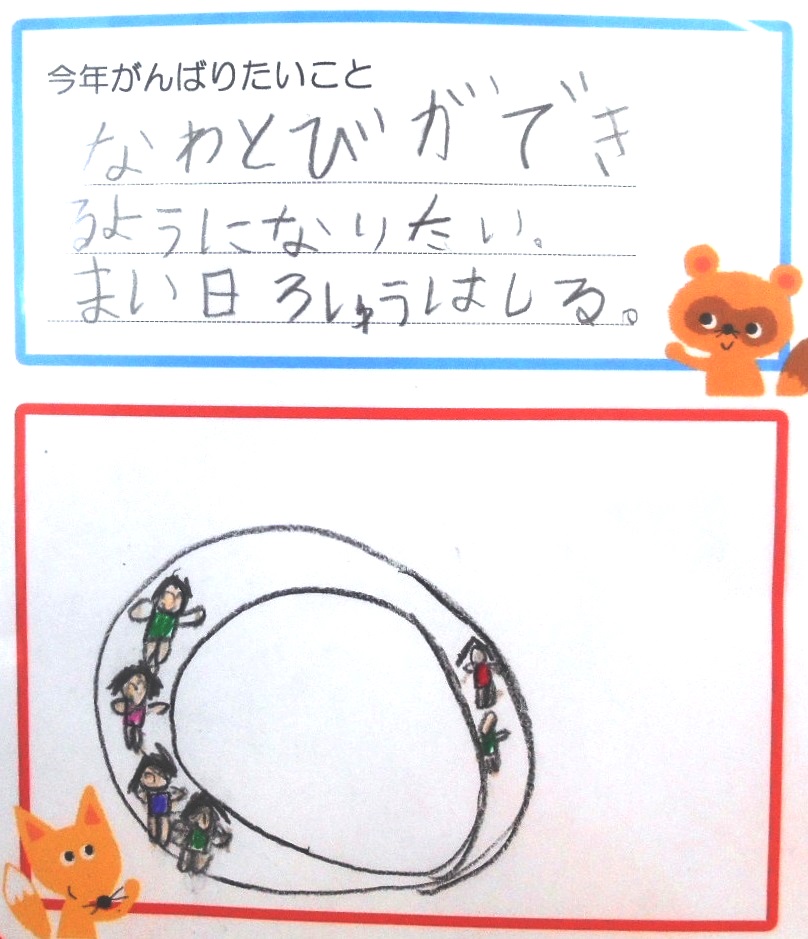 今年がんばりたいこと
なわとびができ
るようになりたい。
まい日ろしゅうはしる。